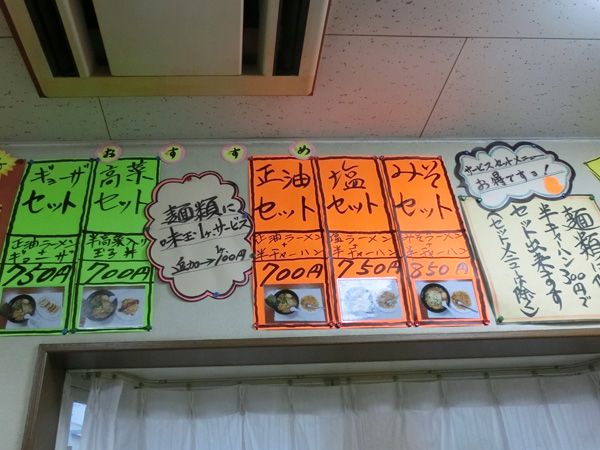 おすすめ
ギョーザ
セット
正油ラーメン
+
ギョーザ
750円
高菜
セット
半高菜入り
玉子丼
700円
麺類に
味玉1ヶサービス
追加→100円
正油
セット
正油ラーメン
+
半チャーハン
700円
塩
セット
塩ラーメン
+
半チャーハン
750円
みそ
セット
みそラーメン
+
半チャーハン
850円
サービスセットメニュー
お得ですよ!
麺類に
半チャーハン300円で
セット出来ます
(セットメニューは除く)